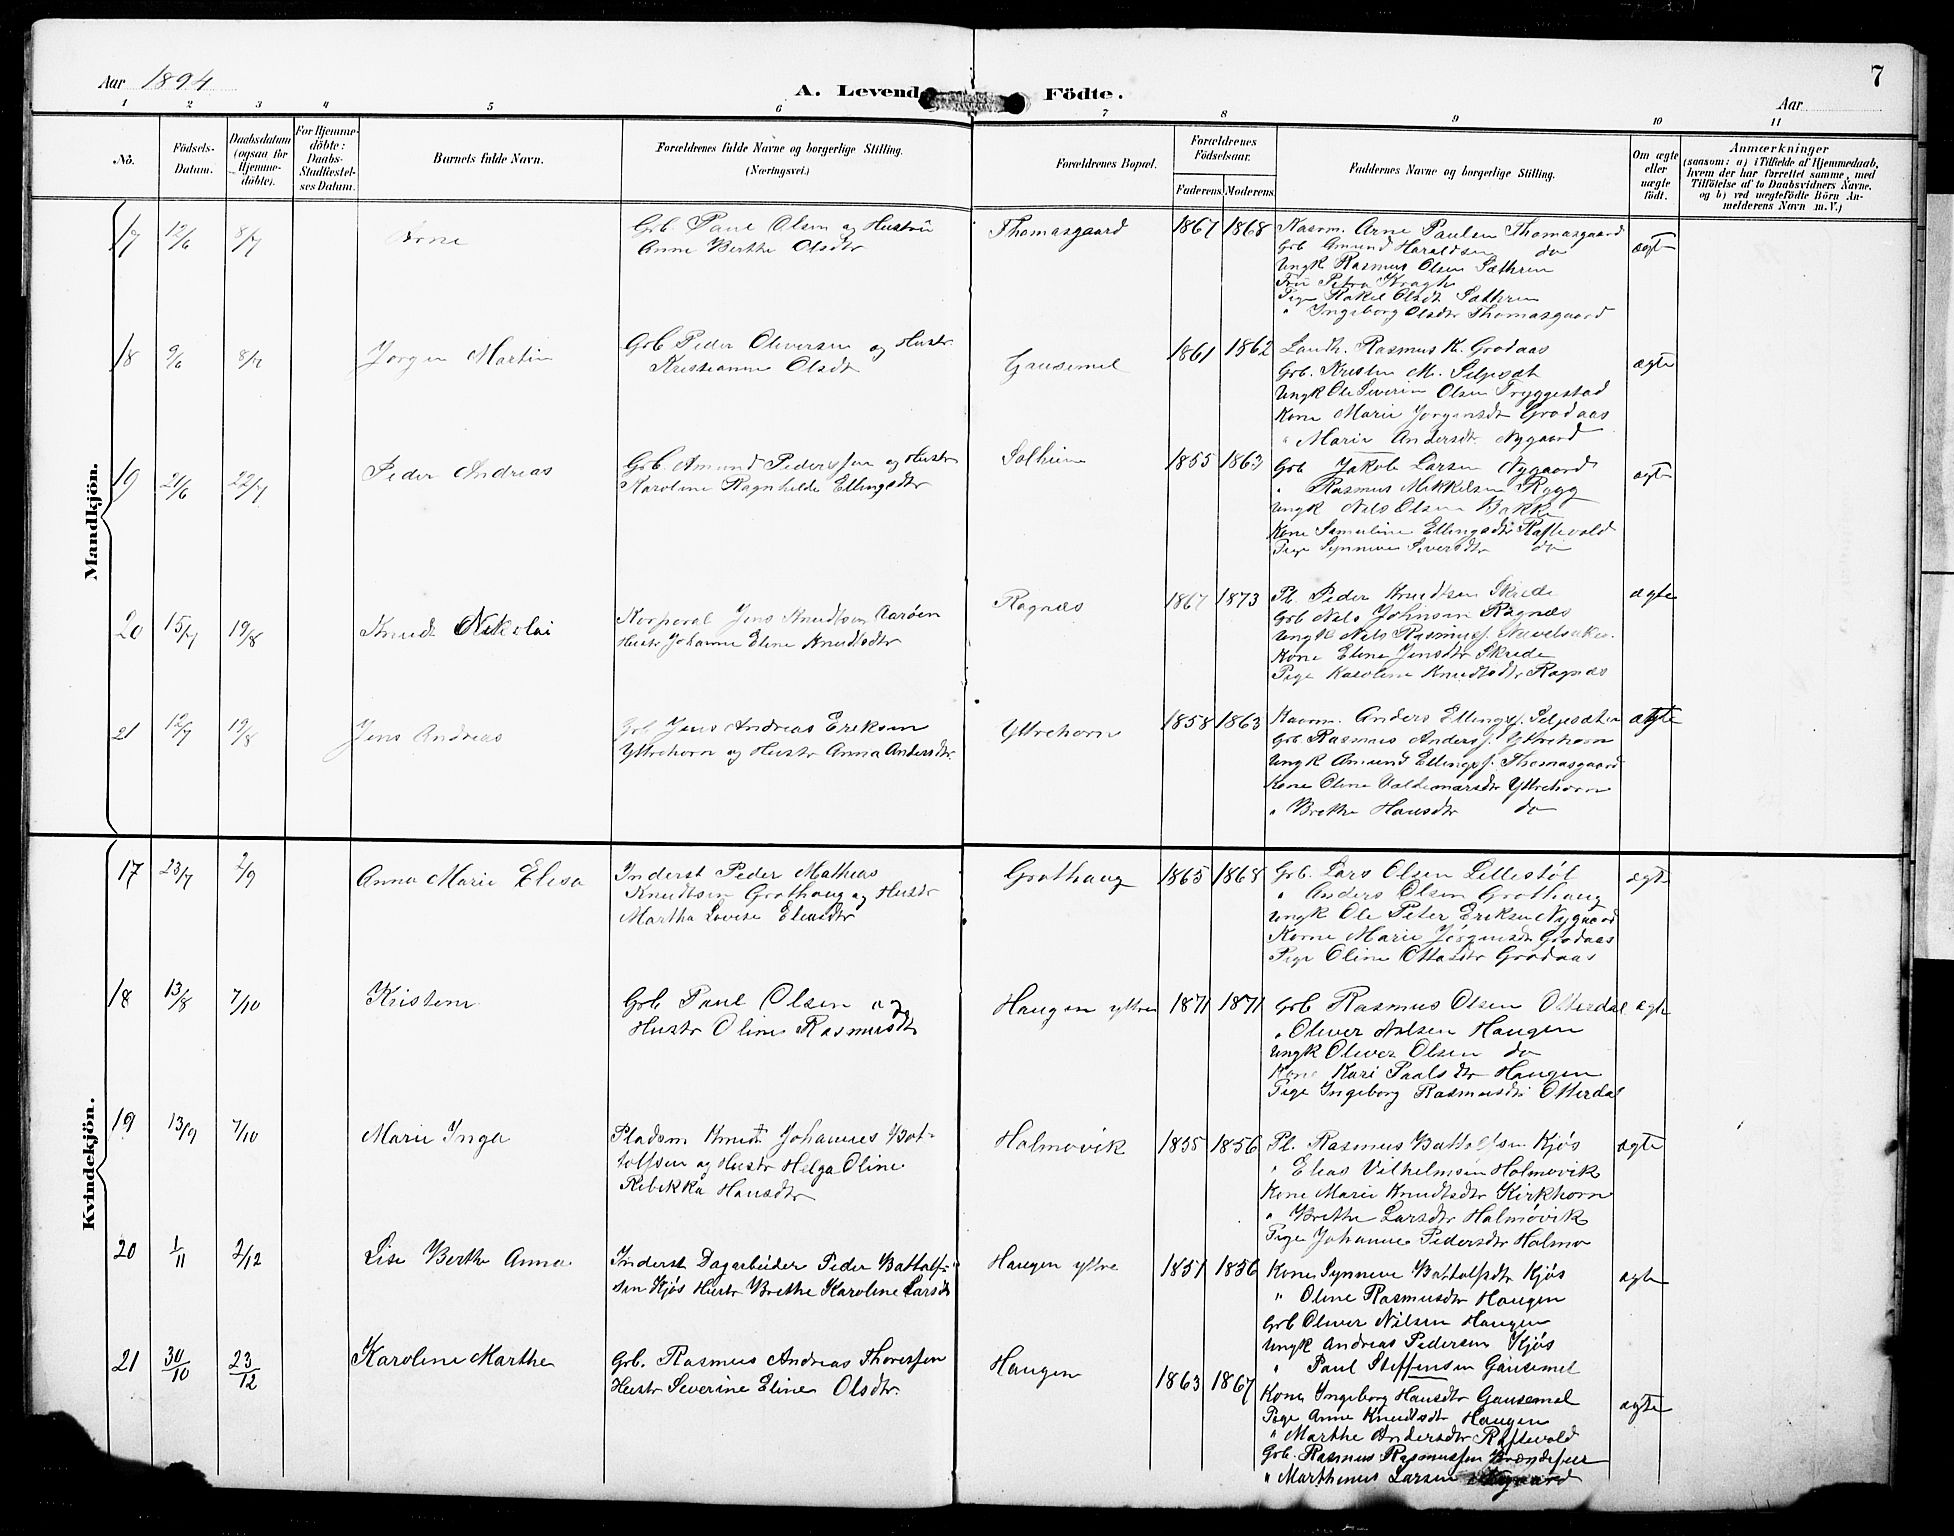 Aar 1894
A. Levende Födte.
7
Aar
1 2 3 4 5 6 7 8 9 10 11
No.
Födsels-Datum.
Daabsdatum (ogsaa for Hjemme-döbte).
For Hjemme-döbte: Daabs-Stadfæstel-ses Datum.
Barnets fulde Navn.
Forældrenes fulde Navne og borgerlige Stilling. (Næringsvei.)
Forældrenes Bopæl.
Forældrenes Födselsaar.
Faderens. Moderens.
Faddernes Navne og borgerlige Stilling.
Om ægte eller uægte födt.
Anmærkninger
(saasom: a) i Tilfælde af Hjemmedaab, hvem der har forrettet samme, med Tilföielse af to Daabsvidners Navne, og b) ved uægtefödte Börn An-melderens Navn m. V.)
Mandkjön.
17 12/6 8/7 Arne
Grb. Paul Olsen og Hustru
Anne Berthe Olsdtr
Thomasgaard 1867 1868
Navm. Arne Paulsen Thomasgaard
Grb Amund Haraldsen do
Ungk Rasmus Olsen Sæthren
Fru Petra Kragh
Pige Rakel Olsdtr Sæthren
" Ingeborg Olsdtr Thomasgaard
ægte
18 9/6 8/7 Jørgen Martin
Grb Peder Oliversen og Hustr
Kristianne Olsdtr
Gausemel 1861 1862
Landh. Rasmus K. Grodaas
Grb. Kristen M. Seljesæt
Ungk Ole Severin Olsen Tryggestad
Kone Marie Jørgensdtr Grodaas
" Marie Andersdtr Nygaard
ægte
19 21/6 22/7 Peder Andreas
Grb. Amund Pederssen og Hustr
Karoline Ragnhilde Ellingsdtr
Solheim 1855 1863
Grb Jakob Larsen Nygaard
" Rasmus Mikkelsen Rygg
Ungk Nils Olsen Bakke
Kone Samuline Ellingsdtr Raftevold
Pige Synneve Siversdtr do
ægte
20 15/7 19/8 Knudt Nikolai
Korporal Jens Knudtsen Aarøen
Hustr Johanne Eline Knudtsdtr
Ragnæs 1867 1873
Pl. Peder Knudtsen Skrede
Grb Nils Johnsen Ragnæs
Ungk Nils Rasmuss.
Kone Eline Jensdtr Skrede
Pige Karoline Knudtsdtr Ragnæs
ægte
21 12/7 19/8 Jens Andreas
Grb Jens Andreas Eriksen
Yttrehorn og Hustr Anna Andersdtr
Yttrehorn 1858 1863
Navm. Anders Ellings. Seljesæter
Grb. Rasmus Anders. Yttrehorn
Ungk Amund Ellings. Thomasgaard
Kone Oline Valdemarsdtr Yttrehorn
" Brethe Hansdtr do
ægte
Kvindekjön.
17 23/7 2/9 Anna Marie Elisa
Inderst Peder Mathias
Knudtsen Grothaug og Hustr
Martha Lovise Eliasdtr
Grothaug 1865 1868
Grb. Lars Olsen Lillestøl
" Anders Olsen Grothaug
Ungk Ole Peter Eriksen Nygaard
Kone Marie Jørgensdtr Grodaas
Pige Oline Ottosdtr Grodaas
ægte
18 13/8 7/10 Kristene
Grb Paul Olsen og
Hustr Oline Rasmusdtr
Haugen yttre 1871 1871
Grb Rasmus Olsen Otterdal
" Oliver Nilsen Haugen
Ungk Oliver Olsen do
Kone Kari Paalsdtr Haugen
Pige Ingeborg Rasmusdtr Otterdal
ægte
19 13/9 7/10 Marie Inga
Pladsm Knudt Johannes Bot-
tolfsen og Hustr Helga Oline
Rebikka Hansdtr
Holmøvik 1855 1856
Pl. Rasmus Battolfsen Kjøs
" Elias Vilhelmsen Holmøvik
Kone Marie Knudtsdtr Kirkhorn
" Brethe Larsdtr Holmøvik
Pige Johanne Pedersdtr Holmø
ægte
20 1/11 2/12 Lise Berthe Anna
Inderst Dagarbeider Peder Battolf-
sen Kjøs Hustr Brethe Karoline Larsdtr
Haugen yttre 1851 1856
Kone Synneve Battolfsdtr Kjøs
" Oline Rasmusdtr Haugen
Grb Oliver Nilsen Haugen
Ungk Andreas Pedersen Kjøs
" Paul Steffensen Gausemel
ægte
21 30/10 23/12 Karoline Marthe
Grb. Rasmus Andreas Thoressen
Hustr Severine Eline Olsdtr
Haugen 1863 1867
Kone Ingeborg Hansdtr Gausemel
Pige Anne Knudtsdtr Haugen
" Marthe Andersdtr Raftevold
Grb. Rasmus Rasmussen
" Marthinus Larsen Nygaard
ægte